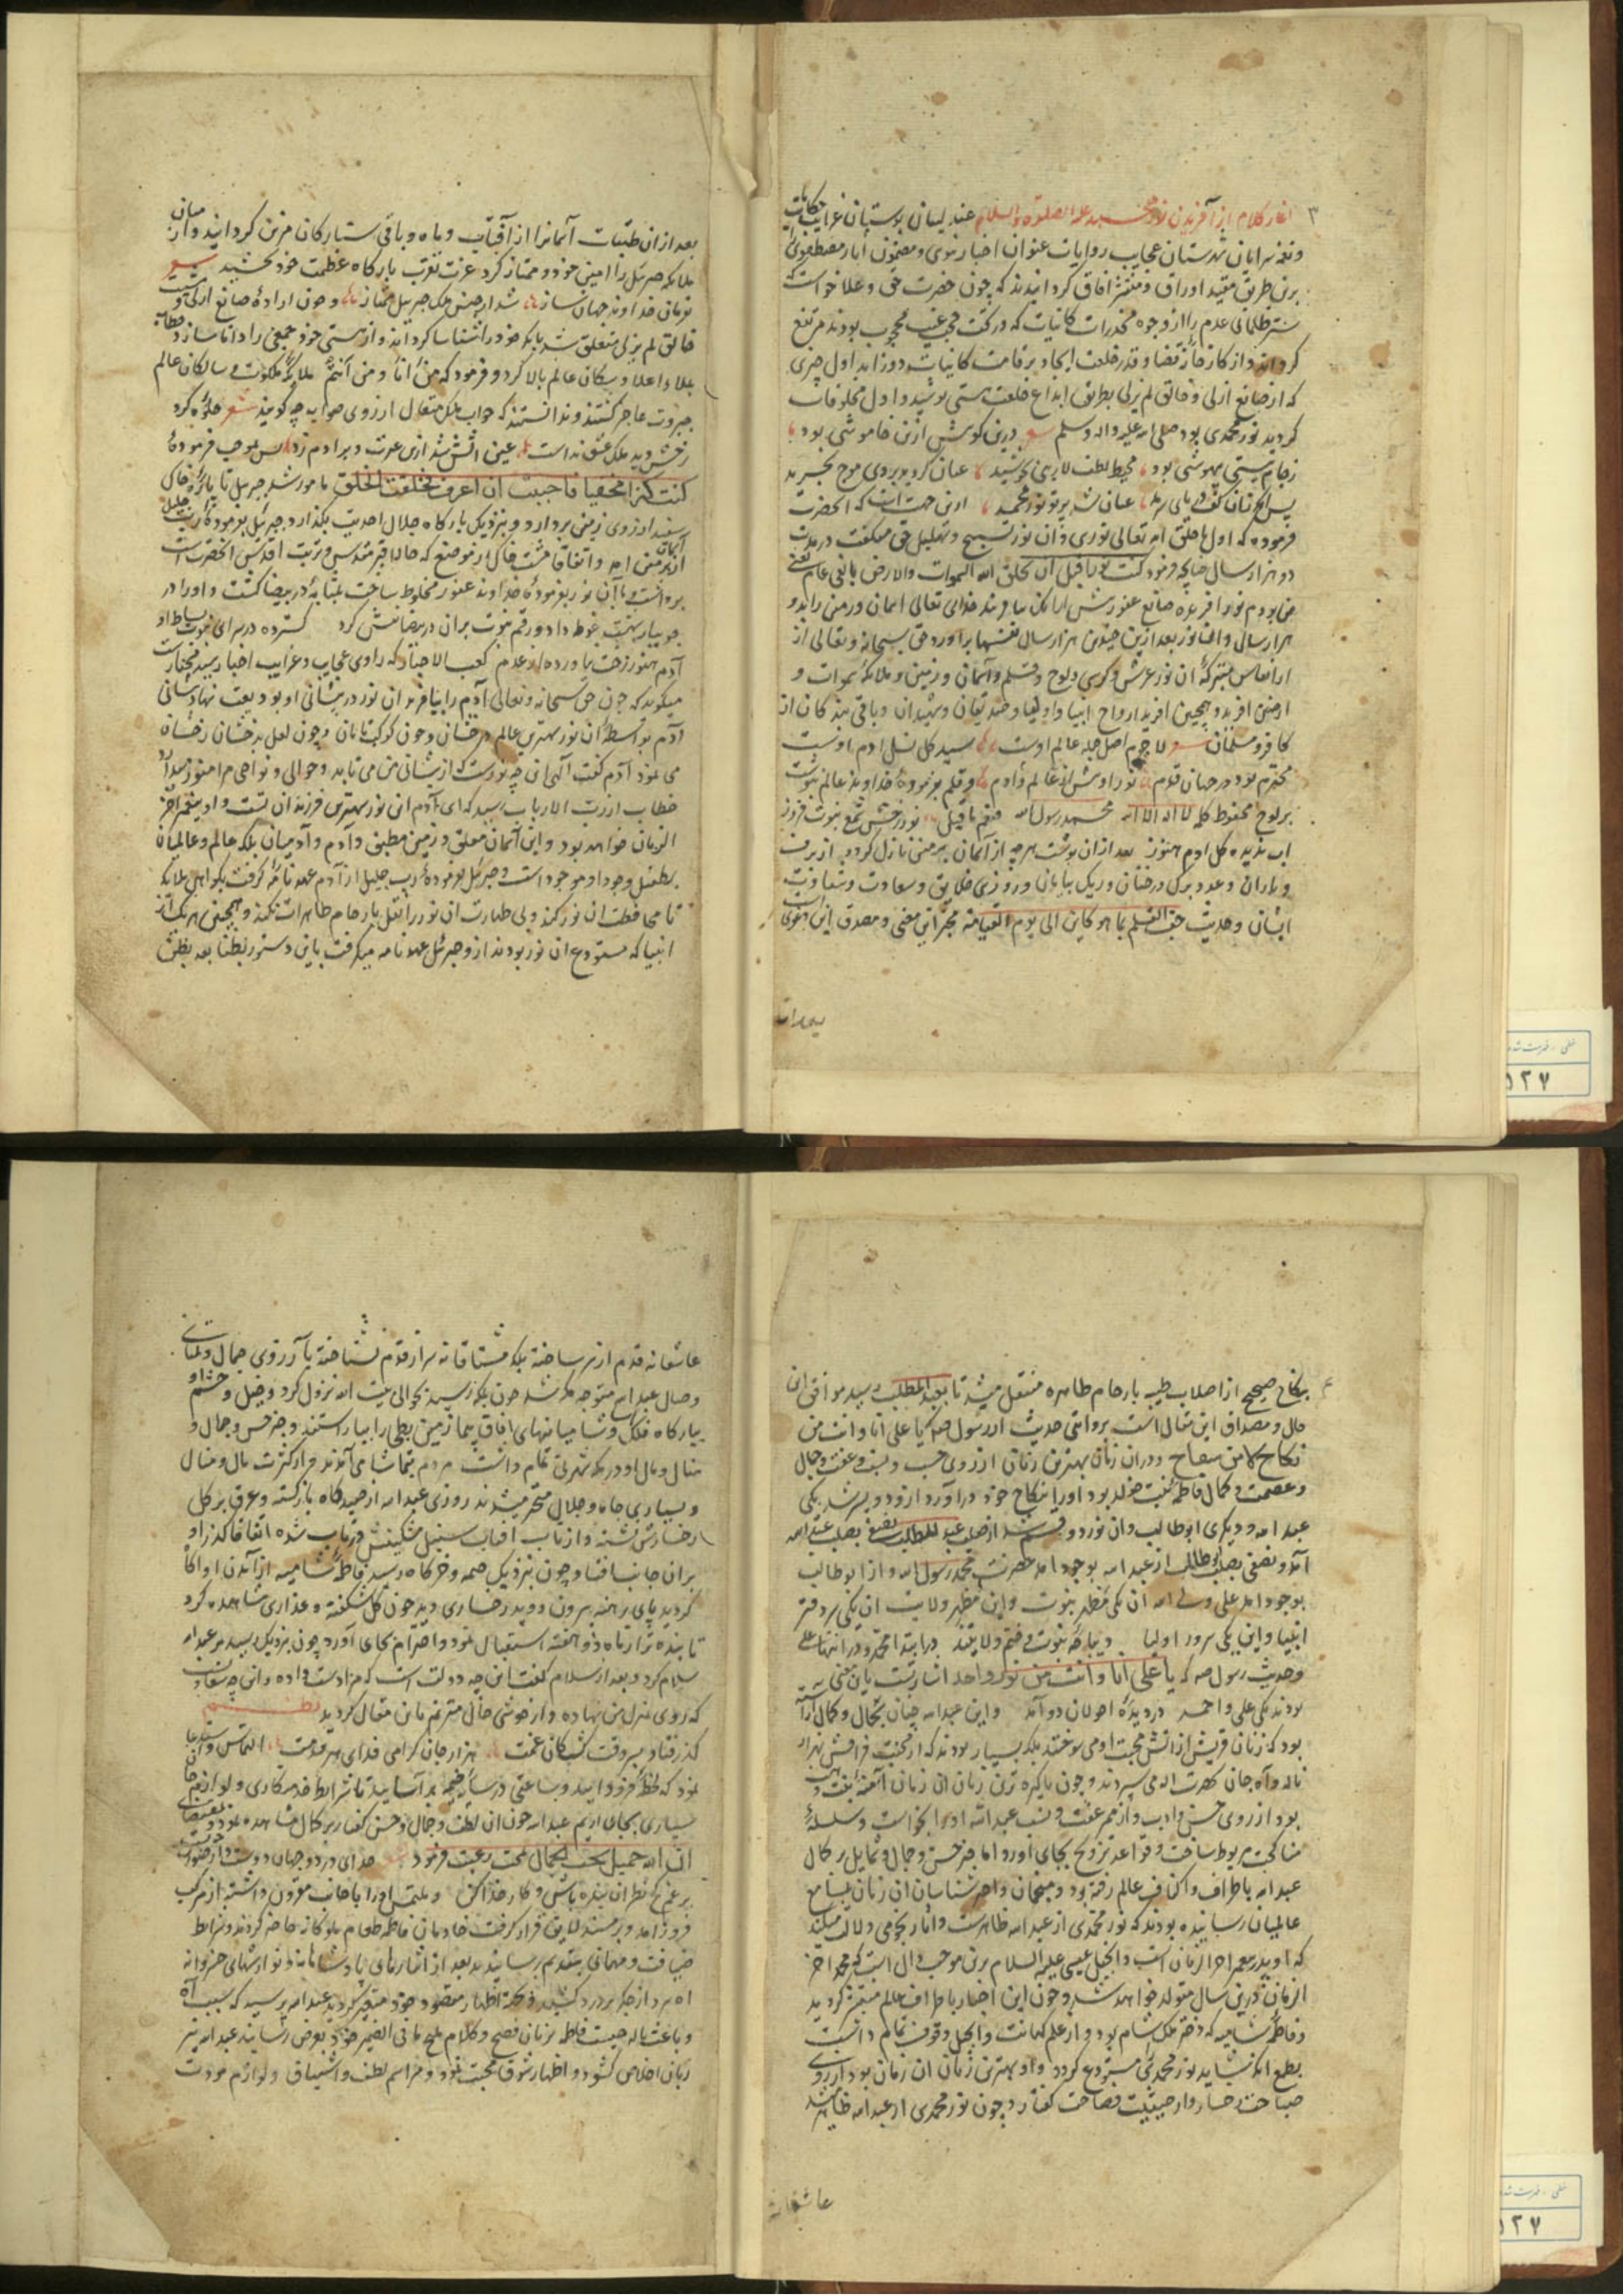 ۳
آغاز کلام از آفریدن نور محمد علیه الصلوة والسلام عندلیبان بوستان غرایب حکایات
و نغمه سرایان شهرستان عجایب روایات عنوان اخبار نبوی و مضمون آثار مصطفوی را
برین طریق مقید اوراق و منتشر آفاق گردانیدند که چون حضرت حق و علا خواست که
ستر ظلمانی عدم را از وجوه مخدرات کاینات که در تحت حجب غیب محجوب بودند مرتفع
گرداند و از کارخانه قضا و قدر خلعت ایجاد بر قامت کاینات دوزاند اول چیزی
که از صانع ازلی و خالق لم یزلی بطریق ابداع خلعت هستی پوشید و اول مخلوقات
گردید نور محمدی بود صلی الله علیه واله وسلم شعر درین کوشش ازین خاموشی بود
ز جام نیستی بیهوشی بود محیط لطف لایزالی جوشید عیان گردید بروی موج
عیان شد پرتو نور محمد ازین جهت است که آنحضرت
فرموده که اول ما خلق الله تعالی نوری و آن نور تسبیح و تهلیل حق میگفت در مدت
دو هزار سال چنانچه فرمود کنت نورا قبل ان یخلق الله السموات والارض بالفی عام یعنی
من بودم نور آفریده صانع عفور پیش از آنکه بیافریند خدای تعالی آسمان و زمین را بدو
هزار سال و آن نور بعد ازین چندین هزار سال نفسها برآورد حق سبحانه و تعالی از
انفاس متبرکه آن نور عرش و کرسی و لوح و قلم و آسمان و زمین و ملائکه سموات و
ارضین آفرید و همچنین آفرید ارواح انبیا و اولیا و صدیقان و شهیدان و باقی بندگان از
کافر و مسلمان شعر لاجرم اصل جمله عالم اوست سید کل نسل آدم اوست
محترم بود در جهان قدوم نور او پیش از عالم و آدم و قلم بفرموده خداوند عالم نوشت
بر لوح محفوظ کلمه لا اله الا الله محمد رسول الله فنعم ما قیل نور رخش شمع نبوت فروز
آب ندیده گل آدم هنوز بعد از آن نوشت هرچه از آسمان بر زمین نازل گردد از برف
و باران و عدد برگ درختان و ریگ بیابان و روزی خلایق و سعادت و شقاوت
ایشان و حدیث جف القلم بما هو کاین الی یوم القیامة مخبر این معنی و مصدق این دعوی
بعد از آن
بعد از آن طبقات آسمانرا از آفتاب و ماه و باقی ستارگان مزین گردانید و از میان
ملائکه جبرئیل را امین خود و ممتاز کرد عزت تقرب بارگاه عظمت خود بخشید شعر
بفرمان خداوند جهان ساز شد از جنس ملک جبریل ممتاز و چون اراده صانع ازلی و مشیت
خالق لم یزلی متعلق شد بانکه خود را شناسا گرداند و از هستی خود جمعی را دانا سازد خطاب
بملاء اعلا و سکان عالم بالا کرد و فرمود که من انا و من انتم ملائکه ملکوت و سالکان عالم
جبروت عاجز گشتند و ندانستند که جواب ملک متعال از روی صواب چه گویند شعر جلوه کرد
رخش دید ملک عشق نداشت عین آتش شد ازین غیرت و بر آدم زد پس بموجب فرموده
کنت کنزا مخفیا فاحببت ان اعرف فخلقت الخلق مامور شد جبریل تا پاره خاک
سفید از روی زمین بردارد و بنزدیک بارگاه جلال احدیت بگذارد جبرئیل بفرموده رب جلیل
از آسمان بزمین آمد و اتفاقا مشت خاک از موضع که حالا قبر مقدس و تربت اقدس آنحضرت است
برداشت و با آن نور بفرموده خداوند عفور مخلوط ساخت بمثابه در بیضا گشت و او را در
جویبار بهشت غوطه داد و رقم نبوت بران در بیضا نقش کرد گسترده در سرای نبوت بساط او
آدم هنوز رخت نیاورده از عدم کعب الاحبار که راوی عجایب و غرایب اخبار سید مختار است
میگوید که چون حق سبحانه و تعالی آدم را بیافرید آن نور در پیشانی او بودیعت نهاد و پیشانی
آدم بواسطه آن نور بهترین عالم درخشان و چون کوکب تابان و چون لعل بدخشان رخشان
می نمود آدم گفت الهی آن چه نور است که از پیشانی من می تابد و حوالی و نواحی مرا منور میدارد
خطاب از رب الارباب رسید که ای آدم این نور بهترین فرزندان تست و او پیغمبر آخر
الزمان خواهد بود و این آسمان معلق و زمین مطبق و آدم و آدمیان بلکه عالم و عالمیان
بطفیل وجود او موجود است و جبرئیل بفرموده رب جلیل از آدم عهدنامه گرفت بگواهی ملائکه
تا محافظت آن نور کند و بی طهارت آن نور را نقل بارحام طاهرات نکند و همچنین هر یک از
انبیا که مستودع آن نور بودند از و جبرئیل عهدنامه میگرفت باین دستور بطنا بعد بطن
۴
بنکاح صحیح از اصلاب طیبه بارحام طاهره منتقل میشد تا بعبد المطلب رسید موافق این
حال و مصداق این مقال است بروایتی حدیث از رسول صه که یا علی انا و انت من
نکاح لا من سفاح و در آن زمان بهترین زنان از روی حسب و نسب و عفت و جمال
و عصمت و کمال فاطمه بنت خولد بود او را بنکاح خود درآورد از و دو پسر شد یکی
عبد الله و دیگری ابوطالب و آن نور دو قسم شد از صلب عبد المطلب نصفی بصلب عبد الله
آمد و نصفی بصلب ابوطالب از عبد الله بوجود آمد حضرت محمد رسول الله و از ابوطالب
بوجود آمد علی ولی الله آن یکی مظهر نبوت و این مظهر ولایت آن یکی سر دفتر
انبیا و این یکی سرور اولیا دیباچه نبوت و ختم ولایتند در ابتدا محمد و در انتها علی
و حدیث رسول صه که یا علی انا و انت من نور واحد اشارتست باین معنی
بودند یکی علی و احمد در دیده احولان دو آمد و این عبد الله چنان بجمال و کمال آراسته
بود که زنان قریش از آتش محبت او می سوختند بلکه بسیار بودند که از محبت فراقش بهزار
ناله و آه جان بحسرت اله می سپردند و چون پاکیزه ترین زنان آن زمان آمنه بنت وهب
بود از روی حسن و ادب و از ممر عفت و نسب عبد الله او را بخواست و سلسله
مناکحت مربوط ساخت و قواعد تزویج بجای آورد اما خبر حسن و جمال و شمایل پر کمال
عبد الله باطراف و اکناف عالم رفته بود و منجمان و اخترشناسان آن زمان بمسامع
عالمیان رسانیده بودند که نور محمدی از عبد الله ظاهر است و آثار نجومی دلالت میکند
که او پدر پیغمبر آخر الزمان است و انجیل عیسی علیه السلام برین موجب دال است که محمد آخر
الزمان درین سال متولد خواهد شد و چون این اخبار باطراف عالم منتشر گردید
و فاطمه شامیه که دختر ملک شام بود و از علم کهانت و انجیل وقوف تمام داشت
بطمع آنکه شاید نور محمدی را مستودع گردد و او بهترین زنان آن زمان بود از روی
صباحت رخسار و از حیثیت فصاحت گفتار و چون نور محمدی از عبد الله ظاهر شد
عاشقانه
عاشقانه قدم از سر ساخته بلکه مشتاقانه سر از قدم نشناخته بآرزوی جمال و تمنای
وصال عبد الله متوجه مکه شد چون بمکه رسید بحوالی بیت الله نزول کرد و خیل و حشم او
ببارگاه فلک و شامیانهای آفاق پیما زمین بطحی را بیاراستند و خبر حسن و جمال و
منال و مال او در مکه شهرتی تمام داشت مردم بتماشا می آمدند و از کثرت مال و منال
و بسیاری جاه و جلال متحیر میشدند روزی عبد الله از صیدگاه بازگشته و عرق بر گل
رخسارش نشسته و از تاب آفتاب سنبل مشکینش در تاب شده اتفاقا گذر او
بران جانب افتاد و چون بنزدیک خیمه و خرگاه رسید فاطمه شامیه از آمدن او آگاه
گردید پای برهنه بیرون دوید رخساری دید چون گل شکفته و عذاری مشاهده کرد
تابنده تر از ماه دو هفته استقبال نمود و احترام بجای آورد چون نزدیک رسید بر عبد الله
سلام کرد و بعد از سلام گفت این چه دولت است که مرا دست داده و این چه سعادت
که روی بمنزل من نهاده و از خوشی حال مترنم باین مقال گردید نظم
گذر فتاد بسر وقت کشتکان غمت هزار جان گرامی فدای هر قدمت التماس و استدعا
نمود که لحظه فرود آیید و ساعتی در سایه خیمه برآسایید تا شرایط خدمتکاری و لوازم جان
سپاری بجای آریم عبد الله چون آن لطف و جمال و حسن گفتار پر کمال مشاهده نمود بمقتضای
ان الله جمیل یحب الجمال بصحبت رغبت فرمود خدای در دو جهان دوست
بر غم نظر آن بنده باش و کار خدا کن و ملتمس او را باجابت مقرون داشته از مرکب
فرود آمد و بر مسند لایق قرار گرفت خادمان فاطمه طعام ملوکانه حاضر کردند و شرایط
ضیافت و مهمانی بتقدیم رسانیدند بعد از نثارهای پادشاهانه و نوازشهای خسروانه
آه سرد از جگر پر درد کشید و بجهة اظهار مقصود خود متفکر گردید عبد الله پرسید که سبب آه
و باعث ناله چیست فاطمه بزبان فصیح و کلام ملیح ما فی الضمیر خود بعرض رسانید عبد الله نیز
زبان اخلاص گشود و اظهار شوق محبت نمود و مراسم لطف و اشتیاق و لوازم مودت
خطی . فهرست شده
۵۲۷
خطی . فهرست شده
۵۲۷